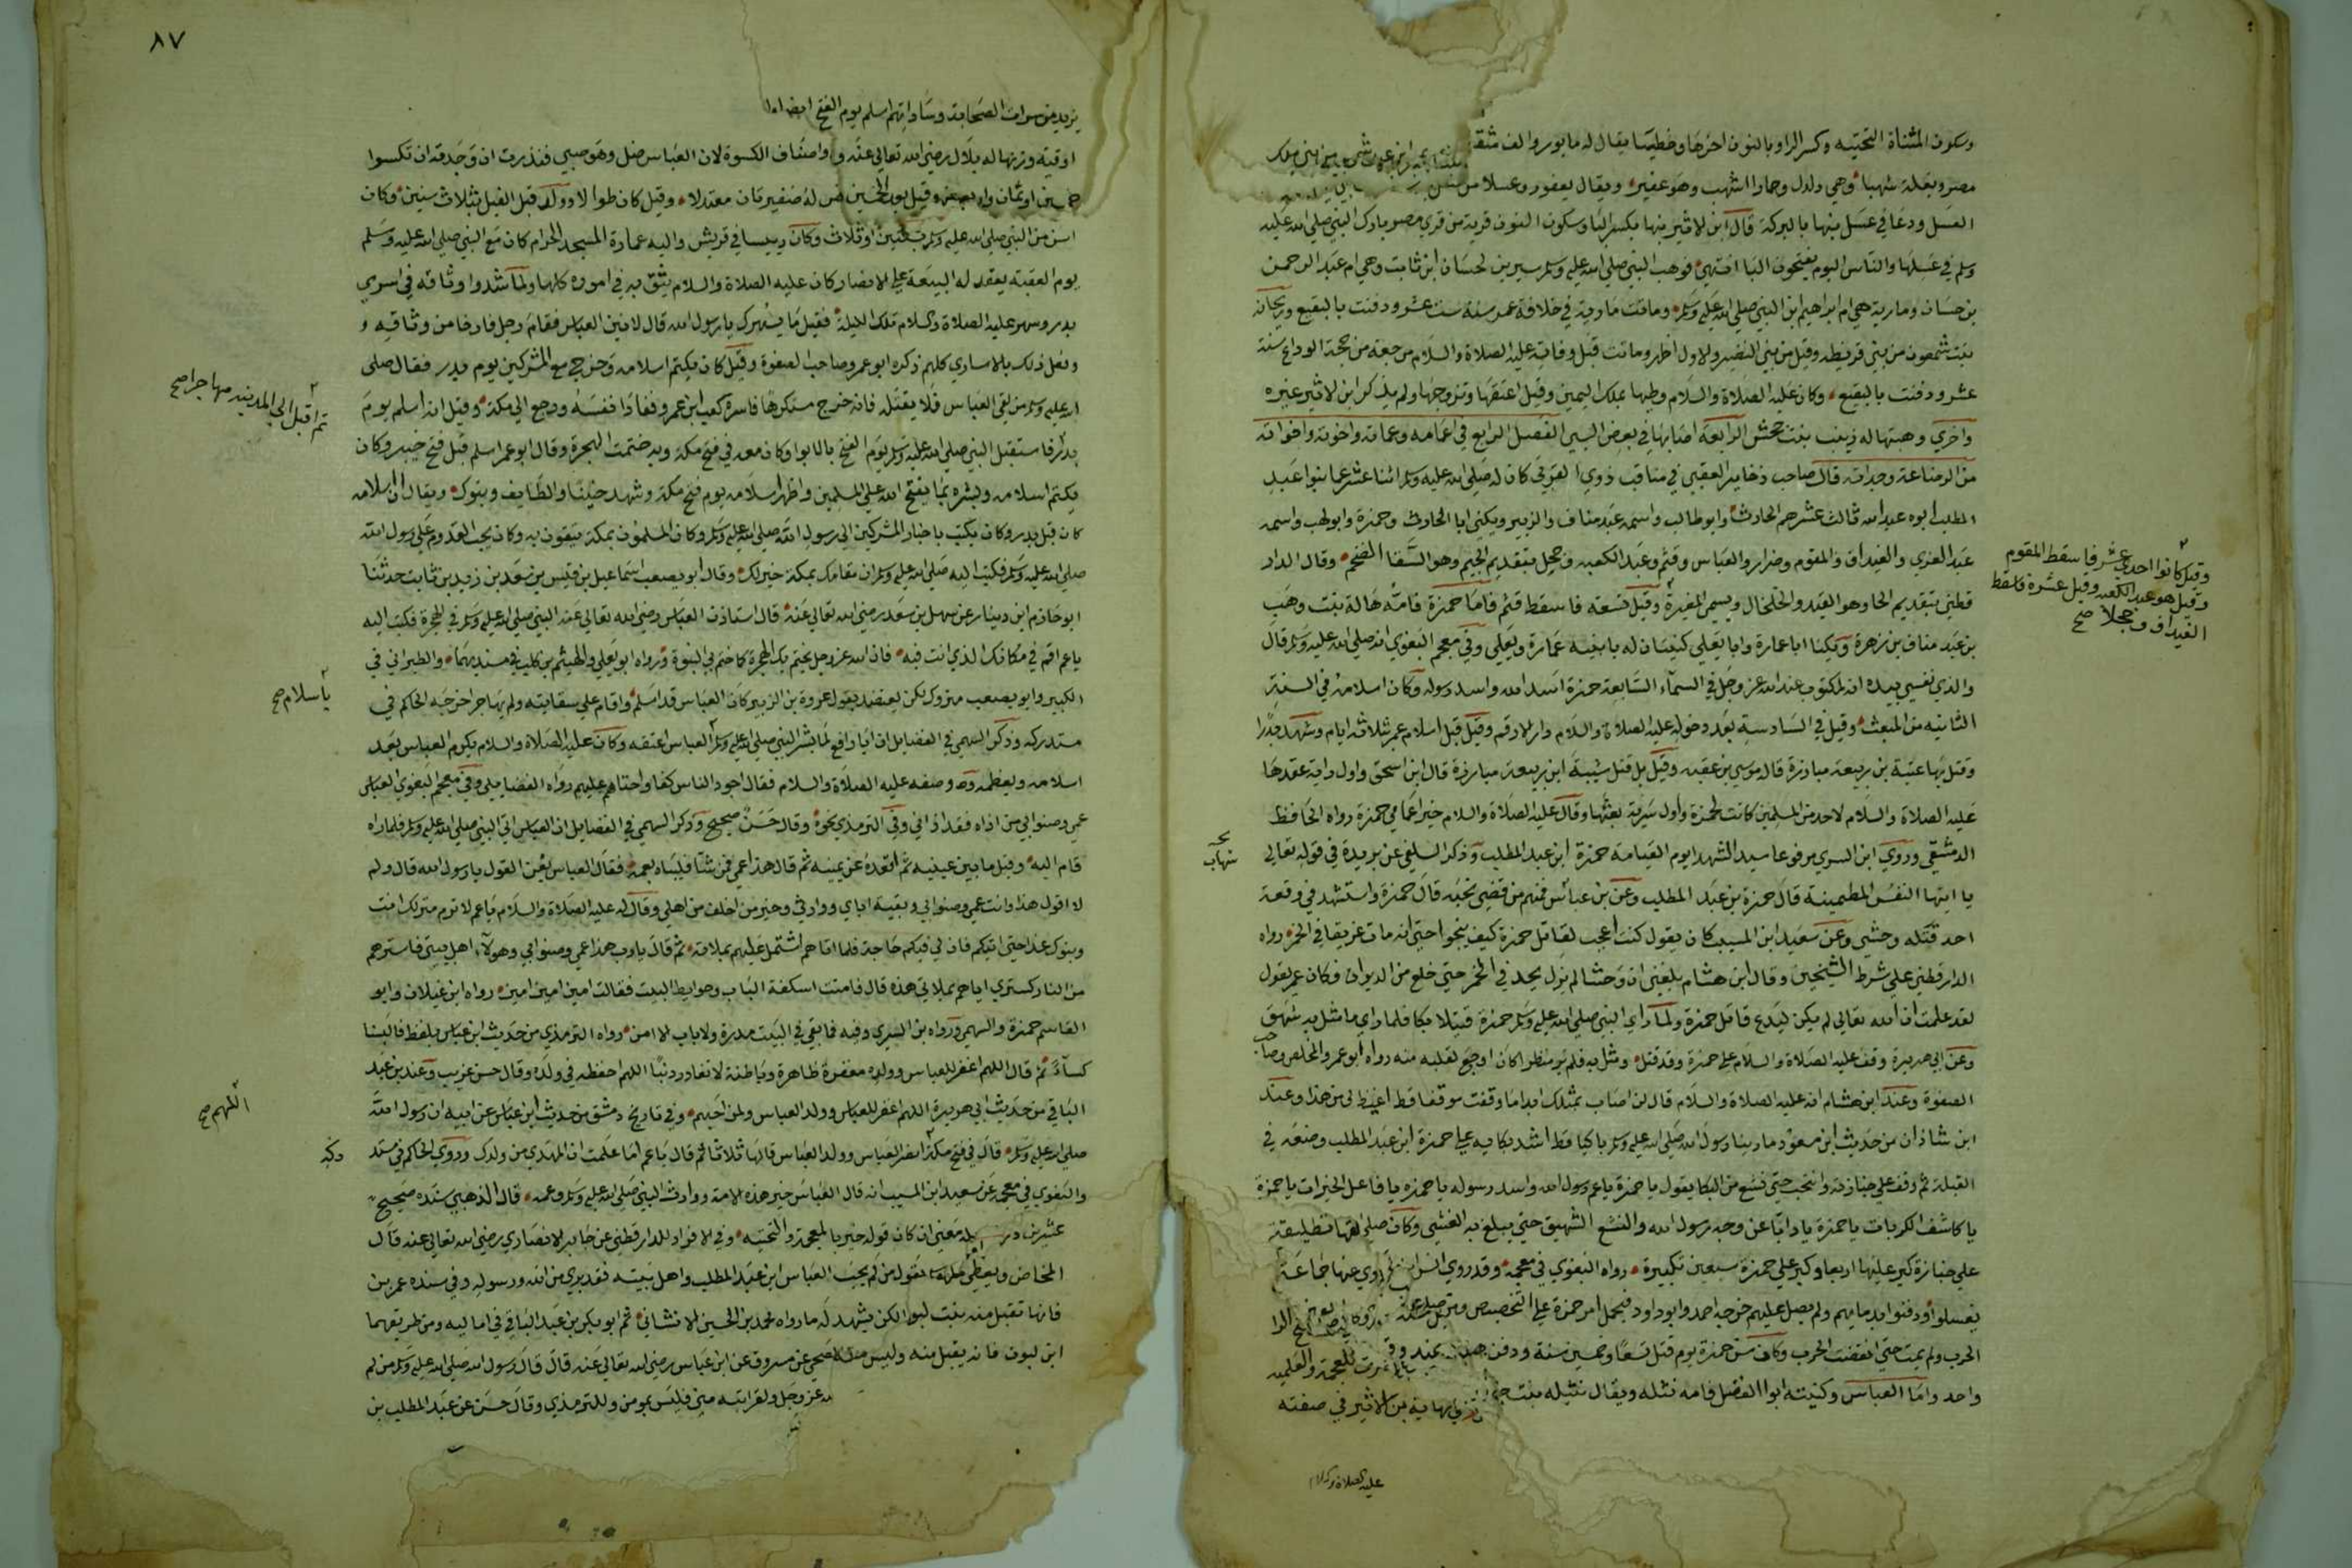 وسكون المثناة التحتيه وكسر الراو بالنون اخرها وخطيبا يقال له مابور والف مثقال
مصر وبغلة شهبا وهي دلدل وحمارا اشهب وهو عفير ويقال يعفور وعسلا من
العسل ودعا في عسل بنها بالبركة قال ابن الاثير بنها بكسر البا وسكون النون قرية من قري مصر بارك النبي صلي الله عليه
وسلم في عسلها والناس اليوم يفتحون البا انتهي فوهب النبي صلي الله عليه وسلم سيرين لحسان ابن ثابت وهي ام عبد الرحمن
بن حسان ومارية هي ام ابراهيم ابن النبي صلي الله عليه وسلم وماتت مارية في خلافة عمر سنة ست عشر ودفنت بالبقيع وريحانة
بنت شمعون من بني قريظه وقيل من بني النضير والاول اظهر وماتت قبل وفاته عليه الصلاة والسلام مرجعه من حجة الوداع سنة
عشر ودفنت بالبقيع وكان عليه الصلاة والسلام وطيها بملك اليمين وقيل اعتقها وتزوجها ولم يذكر ابن الاثير غيره
واخري وهبتها له زينب بنت جحش الرابعة اصابها في بعض السبي الفصل الرابع في اعمامه وعماته واخوته واخواته
من الرضاعة وجداته قال صاحب ذخاير العقبي في مناقب ذوي القربي كان له صلي الله عليه وسلم اثنا عشر عما بنوا عبد
المطلب ابوه عبد الله ثالث عشرهم الحارث وابو طالب واسمه عبد مناف والزبير ويكني ابا الحارث وحمزة وابو لهب واسمه
عبد العزي والغيداق والمقوم وضرار والعباس وقثم وعبد الكعبه وجحل بتقديم الجيم وهو السقا الضخم وقال الدار
قطني بتقديم الحا وهو القيد والخلخال ويسمي المغيرة وقيل تسعة فاسقط قثم فاما حمزة فامه هالة بنت وهيب
بن عبد مناف بن زهرة ويكنا ابا عمارة وابا يعلي كنيتان له بابنيه عمارة ويعلي وفي معجم البغوي انه صلي الله عليه وسلم قال
والذي نفسي بيده انه لمكتوب عند الله عز وجل في السمآء السابعة حمزة اسد الله واسد رسوله وكان اسلامه في السنة
الثانيه من المبعث وقيل في السادسة بعد دخوله عليه الصلاة والسلام دار الارقم وقيل قبل اسلام عمر بثلاثة ايام وشهد بدرا
وقتل بها عتبة بن ربيعة مبارزة قاله موسي بن عقبه وقيل بل قتل شيبة ابن ربيعة مبارزة قال ابن اسحق واول راية عقدها
عليه الصلاة والسلام لاحد من المسلمين كانت لحمزة واول سرية بعثها وقال عليه الصلاة والسلام خير اعمامي حمزة رواه الحافظ
الدمشقي وروي ابن السري مرفوعا سيد الشهدا يوم القيامة حمزة ابن عبد المطلب وذكر السلفي عن بريدة في قوله تعالي
يا ايتها النفس المطمينة قال حمزة بن عبد المطلب وعن بن عباس فمنهم من قضي نحبه قال حمزة واستشهد في وقعة
احد قتله وحشي وعن سعيد ابن المسيب كان يقول كنت اعجب لقاتل حمزة كيف ينجوا حتي انه مات غريقا في الخمر رواه
الدار قطني علي شرط الشيخين وقال ابن هشام بلغني ان وحشيا لم يزل يحد في الخمر حتي خلع من الديوان فكان عمر يقول
لقد علمت ان الله تعالي لم يكن ليدع قاتل حمزة ولما راي النبي صلي الله عليه وسلم حمزة قتيلا بكا فلما راي ما مثل به شهق
وعن ابي هريرة وقف عليه الصلاة والسلام علي حمزة وقد قتل ومثل به فلم ير منظرا كان اوجع لقلبه منه رواه ابو عمر والمخلص وصاحب
الصفوة وعند ابن هشام انه عليه الصلاة والسلام قال لن اصاب بمثلك ابدا ما وقفت موقفا قط اغيظ لي من هذا وعند
ابن شاذان من حديث ابن مسعود ما راينا رسول الله صلي الله عليه وسلم باكيا قط اشد بكايه علي حمزة ابن عبد المطلب وضعه في
القبلة ثم وقف علي جنازته وانتحب حتي نشع من البكا يقول يا حمزة يا عم رسول الله واسد رسوله يا حمزه يا فاعل الخيرات يا حمزة
يا كاشف الكربات يا حمزة يا ذابا عن وجه رسول الله والنشع الشهيق حتي يبلغ به الغشي وكان صلي
علي جنازة كبر عليها اربعا وكبر علي حمزة سبعين تكبيرة رواه البغوي في معجمه وقد روي انس
يغسلوا ودفنوا بدمايهم ولم يصل عليهم خرجه احمد وابو داود فيحمل امر حمزة علي التخصيص
الحرب ولم يمت حتي انقضت الحرب وكان سن حمزة يوم قتل تسعا وخمسين سنة ودفن
واحد واما العباس وكنيته ابوا الفضل فامه نثله ويقال نثيله بنت
وقيل كانوا احدي عشر فاسقط المقوم
وقيل هو عبد الكعبه وقيل عشرة فاسقط
الغيداق وجحلا صح
عليه الصلاة والسلام
٨٧
اوقية وترنها له بلال رضي الله تعالي عنه و واصناف الكسوة لان العباس ضل وهو صبي فنذرت ان وجدته ان تكسوا
اسن من النبي صلي الله عليه وسلم بسنتين او ثلاث وكان رييسا في قريش واليه عمارة المسجد الحرام كان مع النبي صلي الله عليه وسلم
يوم العقبة يعقد له البيعة علي الانصار وكان عليه الصلاة والسلام يثق به في اموره كلها ولما شدوا وثاقه في اسري
بدر وسهر عليه الصلاة والسلام تلك الليلة فقيل ما يسهرك يا رسول الله قال لانين العباس فقام رجل فارخا من وثاقيه و
وفعل ذلك بالاساري كلهم ذكره ابو عمر وصاحب الصفوة وقيل كان يكتم اسلامه وخرج مع المشركين يوم بدر فقال صلي
الله عليه وسلم من لقي العباس فلا يقتله فانه خرج مستكرها فاسره كعب ابن عمرو ففادا نفسه ورجع الي مكة وقيل انه اسلم يوم
بدر فاستقبل النبي صلي الله عليه وسلم يوم الفتح بالابوا وكان معه في فتح مكة وبه ختمت الهجرة وقال ابو عمر اسلم قبل فتح خيبر وكان
يكتم اسلامه ويسره بما يفتح الله علي المسلمين واظهر اسلامه يوم فتح مكة وشهد حنينا والطايف وتبوك ويقال ان اسلامه
كان قبل بدر وكان يكتب باخبار المشركين الي رسول الله صلي الله عليه وسلم وكان المسلمون بمكة يتقون به وكان يحب القدوم علي رسول الله
صلي الله عليه وسلم فكتب اليه صلي الله عليه وسلم ان مقامك بمكة خير لك وقال ابو مصعب اسماعيل بن قيس بن سعد بن زيد بن ثابت حدثنا
ابو حازم ابن دينار عن سهل بن سعد رضي الله تعالي عنه قال استاذن العباس رضي الله تعالي عنه النبي صلي الله عليه وسلم في الهجرة فكتب اليه
يا عم اقم في مكانك الذي انت فيه فان الله عز وجل يختم بك الهجرة كما ختم بي النبوة ورواه ابو يعلي والهيثم بن كليب في مسنديهما والطبراني في
الكبير وابو مصعب متروك لكن يعضد بقول عروة بن الزبير كان العباس قد اسلم واقام علي سقايته ولم يهاجر اخرجه الحاكم في
مستدركه وذكر السهمي في الفضايل ان ابا رافع لما بشر النبي صلي الله عليه وسلم العباس اعتقه وكان عليه الصلاة والسلام يكرم العباس بعد
اسلامه ويعظمه ووصفه عليه الصلاة والسلام فقال اجود الناس كفا واحناهم عليهم رواه الفضايلي وفي معجم البغوي العباس
عمي وصنوا ابي من اذاه فقد اذاني وفي الترمذي نحوه وقال حسن صحيح وذكر السهمي في الفضايل ان العباس اتي النبي صلي الله عليه وسلم فلما راه
قام اليه وقبل ما بين عينيه ثم اقعده عن يمينه ثم قال هذا عمي فمن شا فليباه بعمه فقال العباس نعم القول يا رسول الله قال ولم
لا اقول هذا وانت عمي وصنوا ابي وبقية اباي ووارثي وخير من اخلف من اهلي وقال له عليه الصلاة والسلام يا عم لا ترم منزلك انت
وبنوك غدا حتي اتيكم فان لي فيكم حاجة فلما اتاهم اشتمل عليهم بملاءته ثم قال يا رب هذا عمي وصنوا ابي وهولآء اهل بيتي فاسترهم
من النار كستري اياهم بملاتي هذه قال فامنت اسكفة الباب وحوايط البيت فقالت امين امين امين رواه ابن غيلان وابو
القاسم حمزة والسهمي ورواه بن السري وفيه فما بقي في البيت مدرة ولا باب الا امن رواه الترمذي من حديث ابن عباس بلفظ فالبسنا
كسآء ثم قال اللهم اغفر للعباس وولده مغفرة ظاهرة وباطنة لا تغادر ذنبا اللهم احفظه في ولده وقال حسن غريب وعند بن عبد
الباقي من حديث ابي هريرة اللهم اغفر للعباس وولد العباس ولمن احبهم وفي تاريخ دمشق من حديث ابن عباس عن ابيه ان رسول الله
صلي الله عليه وسلم قال في فتح مكة انصر العباس وولد العباس قالها ثلاثا ثم قال يا عم اما علمت ان المهدي من ولدك وروي الحاكم في مستد
والبغوي في معجمه عن سعيد ابن المسيب انه قال العباس خير هذه الامة ووارث النبي صلي الله عليه وسلم وعمه قال الذهبي سنده صحيح
معني ان كان قوله خير بالمعجمة والتحتيه وفي الافراد للدارقطني عن جابر الانصاري رضي الله تعالي عنه قال
يقول من لم يحب العباس ابن عبد المطلب واهل بيته فقد بري من الله ورسوله وفي سنده عمر بن
لكن يشهد له ما رواه محمد بن الحسين الاشناني ثم ابو بكر بن عبد الباقي في اماليه ومن طريقهما
عن مسروق عن ابن عباس رضي الله تعالي عنه قال قال رسول الله صلي الله عليه وسلم من لم
لله عز وجل ولقرابته مني فليس بمومن وللترمذي وقال حسن عن عبد المطلب بن
ثم اقبل الي المدينه مهاجرا صح
باسلام صح
اللهم صح